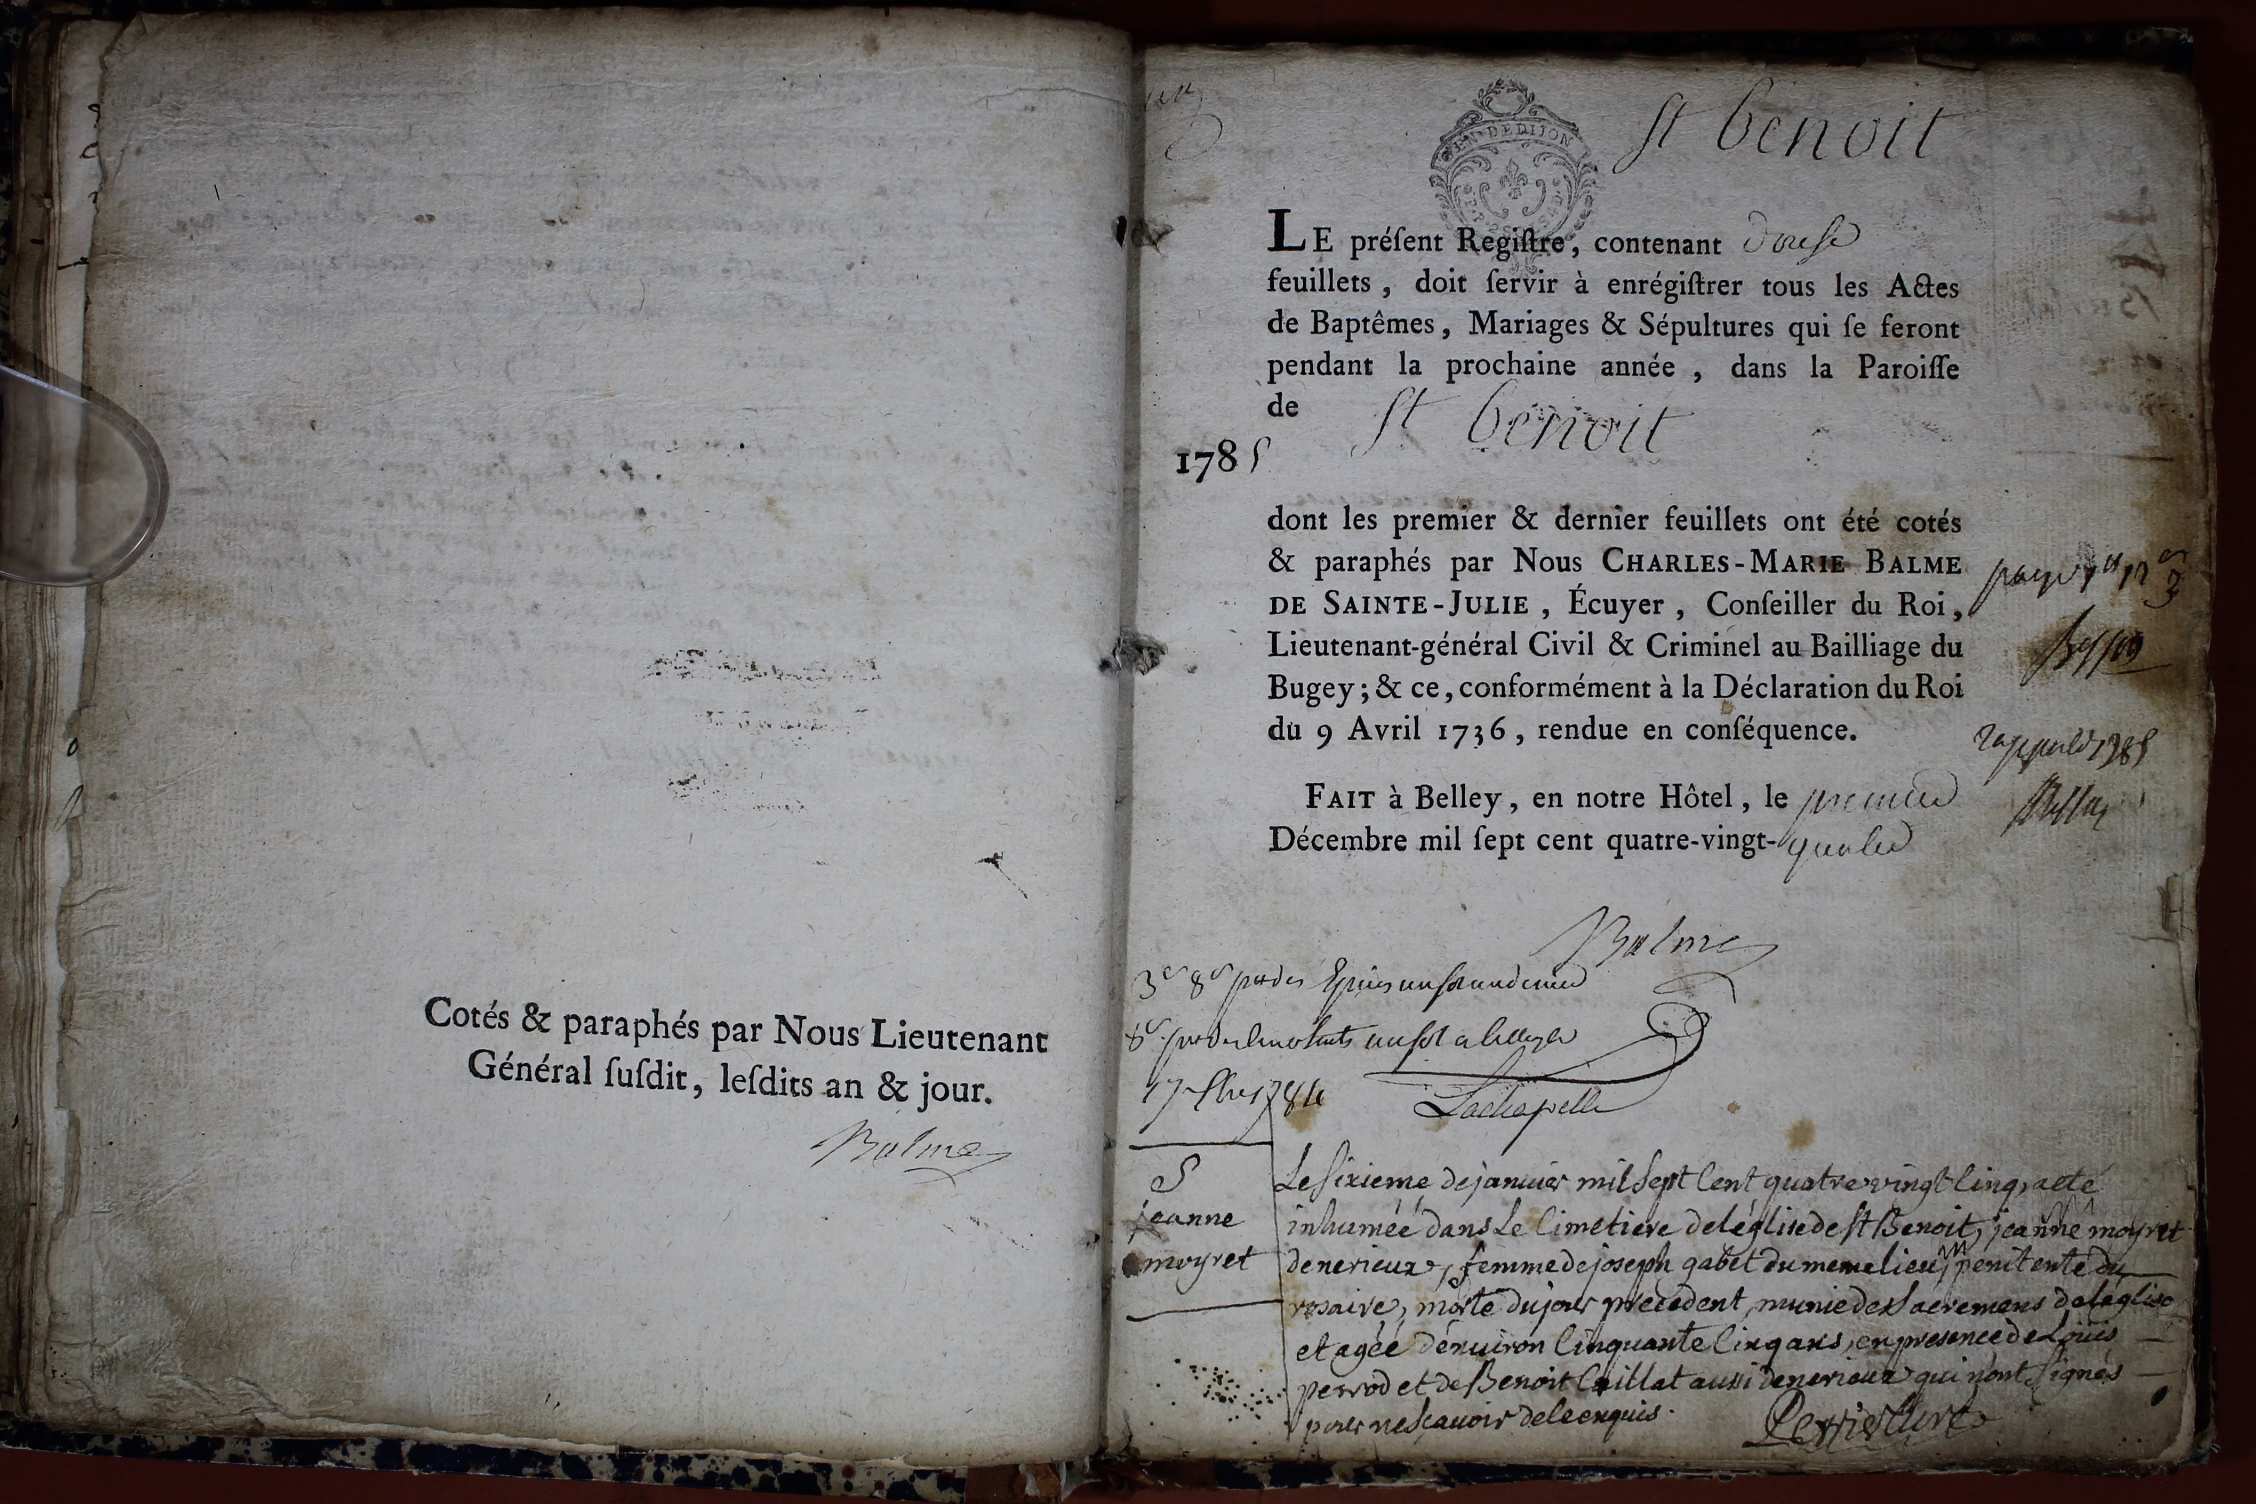 Cotés & paraphés par Nous Lieutenant
Général ſuſdit, leſdits an & jour.
Balme
St benoit
GEN. DE DIJON
LE préſent Regiſtre, contenant douse
feuillets, doit ſervir à enrégiſtrer tous les Actes
de Baptêmes, Mariages & Sépultures qui ſe feront
pendant la prochaine année, dans la Paroiſſe
de St benoit
1785
dont les premier & dernier feuillets ont été cotés
& paraphés par Nous CHARLES-MARIE BALME
DE SAINTE-JULIE, Écuyer, Conſeiller du Roi,
Lieutenant-général Civil & Criminel au Bailliage du
Bugey; & ce, conformément à la Déclaration du Roi
du 9 Avril 1736, rendue en conſéquence.
FAIT à Belley, en notre Hôtel, le premier
Décembre mil ſept cent quatre-vingt-quatre
1785
Balme
3s 8d
1784
Lachapelle
S
jeanne
moyret
Le Sixieme de janvier mil Sept Cent quatre vingt Cinq, a eté
inhumée dans Le Cimetiere de léglise de St Benoit, jeanne moyret
de nerieux, femme de joseph gabet du meme lieu, penitente du
rosaire, morte du jour precedent, munie des Sacremens de leglise
et agée dénviron Cinquante Cinq ans, en presence de Louis
perrod et de Benoit Caillat aussi de nerieux qui n'ont Signés
pour ne Scavoir de le enquis.
Perrier Curé